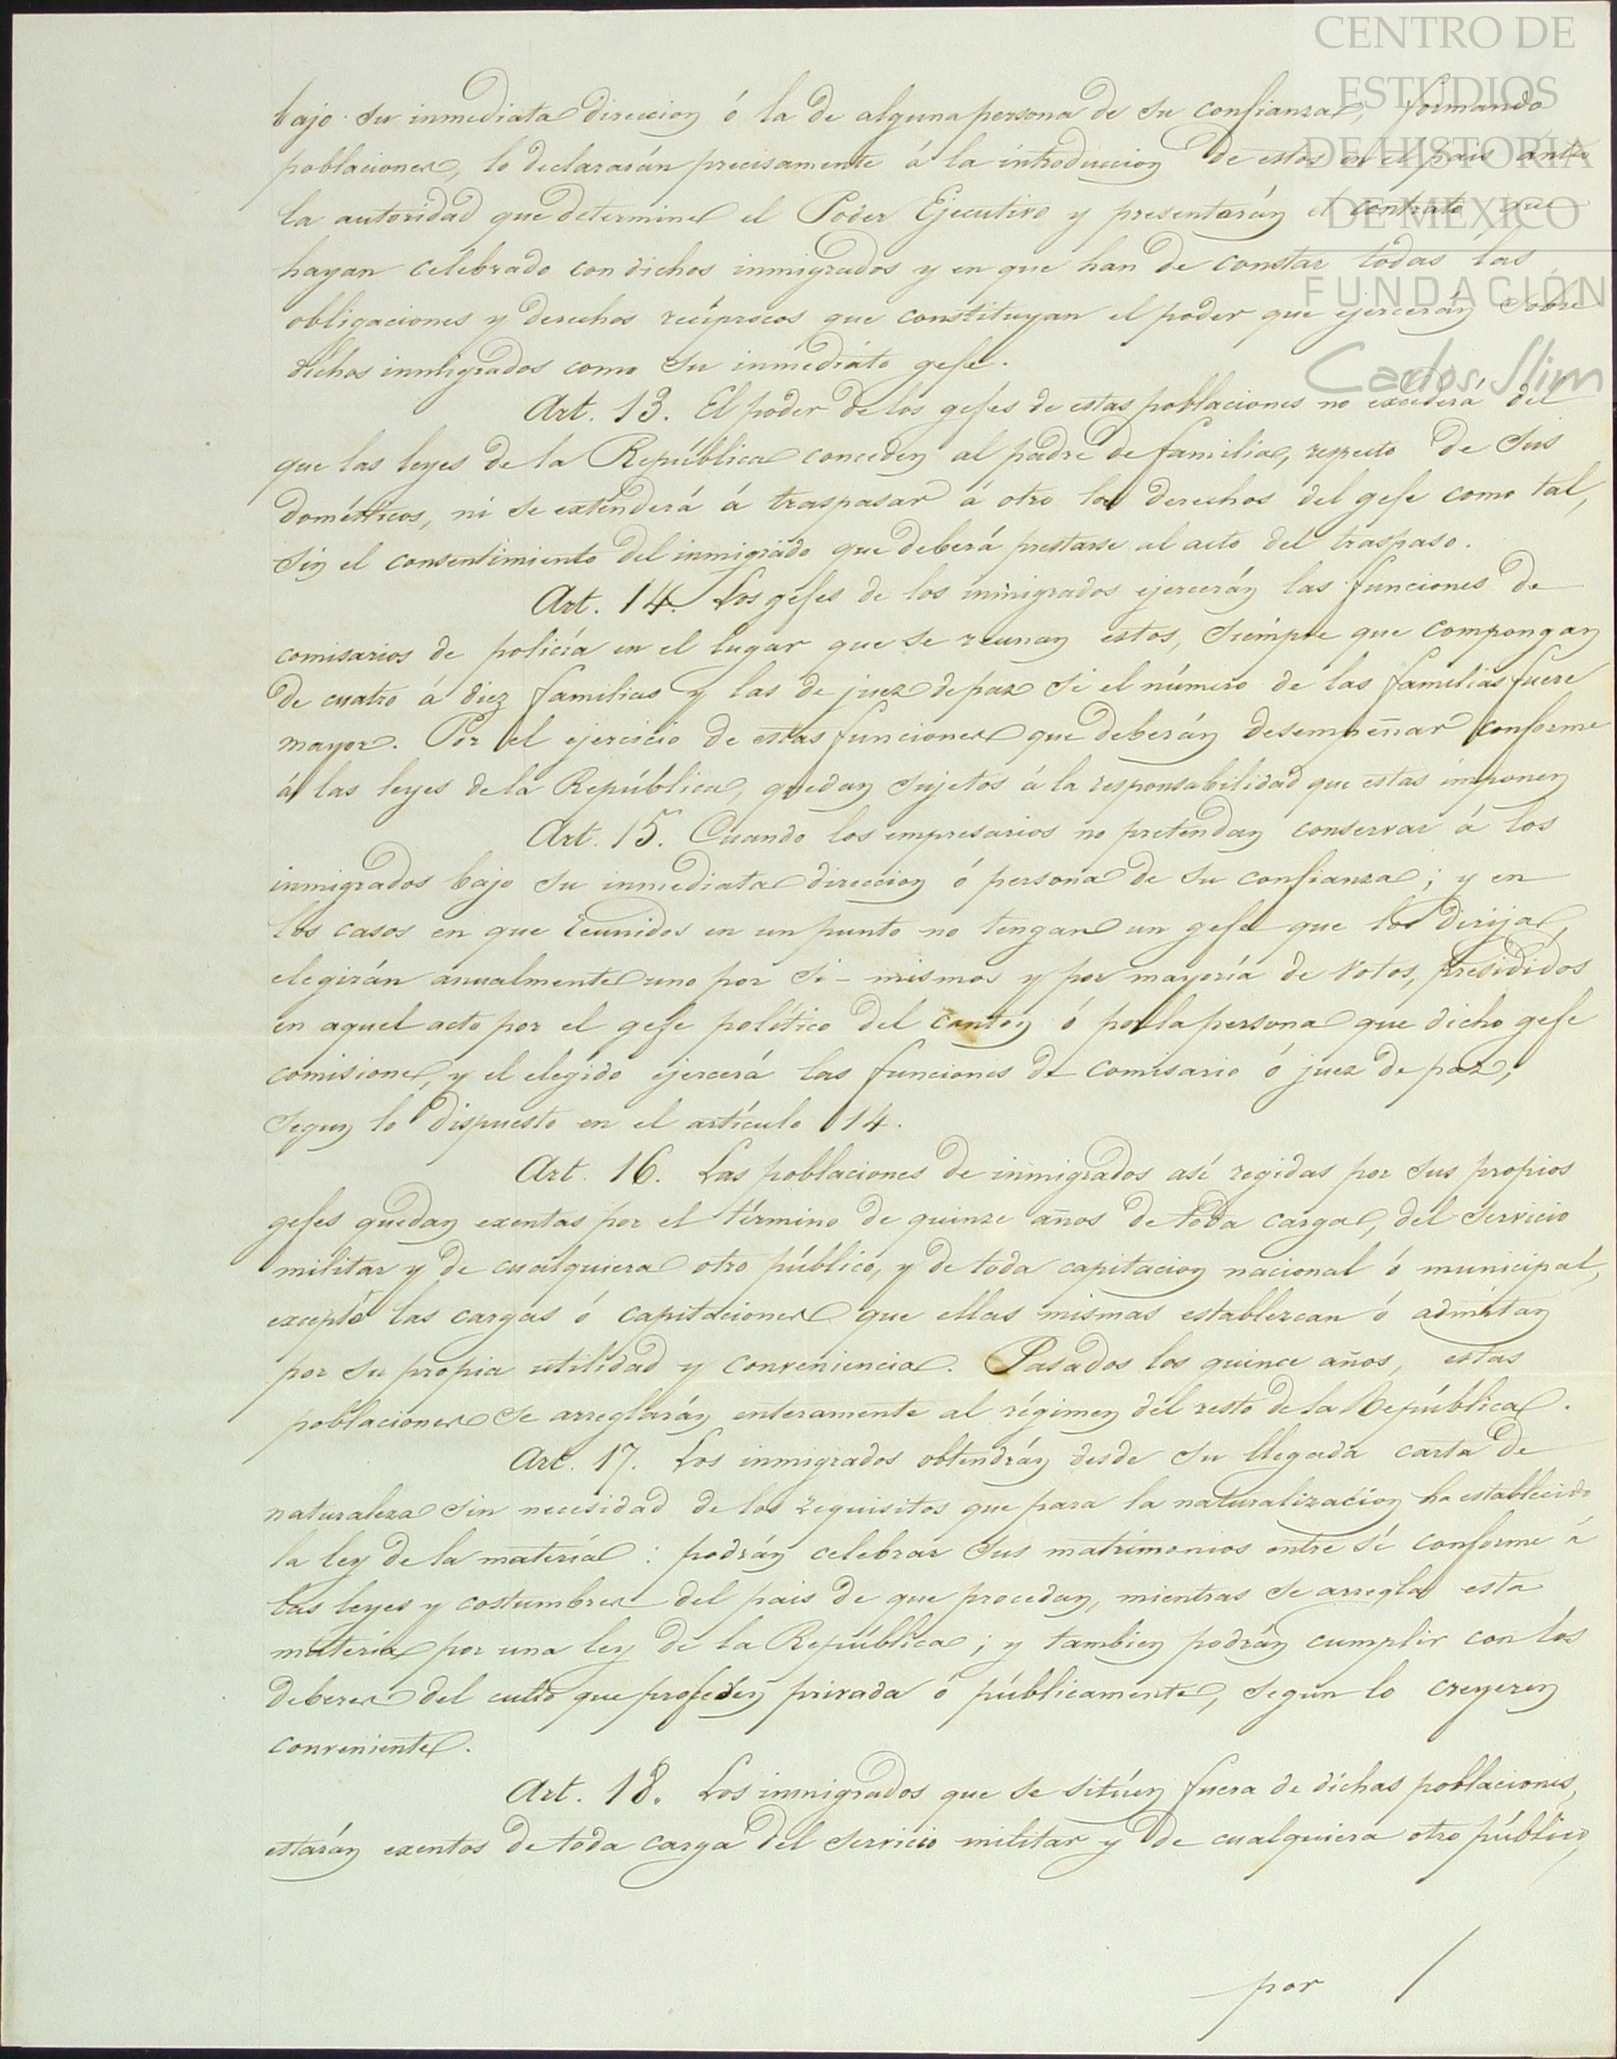 CENTRO DE
ESTUDIOS
DE HISTORIA
DE MÉXICO
FUNDACIÓN
Carlos Slim
bajo su inmediata direccion ó la de alguna persona de su confianza, formando
poblaciones, lo declararán precisamente á la introduccion de estos en el pais ante
la autoridad que determine el Poder Ejecutivo y presentarán el contrato que
hayan celebrado con dichos inmigrados y en que han de constar todas las
obligaciones y derechos recíprocos que constituyan el poder que ejercerán sobre
dichos inmigrados como su inmediato gefe.
Art. 13. El poder de los gefes de estas poblaciones no excederá del
que las leyes de la República conceden al padre de familia, respecto de sus
domésticos, ni se extenderá á traspasar á otro los derechos del gefe como tal,
sin el consentimiento del inmigrado que deberá prestarse al acto del traspaso.
Art. 14. Los gefes de los inmigrados ejercerán las funciones de
comisarios de policía en el lugar que se reunan estos, siempre que compongan
de cuatro á diez familias y las de juez de paz si el número de las familias fuere
mayor. Por el ejercicio de estas funciones que deberán desempeñar conforme
á las leyes de la República, quedan sujetos á la responsabilidad que estas imponen
Art. 15. Cuando los empresarios no pretendan conservar á los
inmigrados bajo su inmediata direccion ó persona de su confianza; y en
los casos en que reunidos en un punto no tengan un gefe que los dirija,
elegirán anualmente uno por si-mismos y por mayoría de votos, presididos
en aquel acto por el gefe político del canton ó por la persona que dicho gefe
comisione, y el elegido ejercerá las funciones de comisario ó juez de paz,
segun lo dispuesto en el artículo 14.
Art. 16. Las poblaciones de inmigrados así regidas por sus propios
gefes quedan exentas por el término de quinze años de toda carga, del servicio
militar y de cualquiera otro público, y de toda capitacion nacional ó municipal,
excepto las cargas ó capitaciones que ellas mismas establezcan ó admitan
por su propia utilidad y conveniencia. Pasados los quince años, estas
poblaciones se arreglarán enteramente al régimen del resto de la República.
Art. 17. Los inmigrados obtendrán desde su llegada carta de
naturaleza sin necesidad de los requisitos que para la naturalizacion ha establecido
la ley de la materia: podrán celebrar sus matrimonios entre sí conforme á
las leyes y costumbres del pais de que procedan, mientras se arregla esta
materia por una ley de la República; y tambien podrán cumplir con los
deberes del culto que profesen privada ó públicamente, segun lo creyeren
conveniente.
Art. 18. Los inmigrados que se sitúen fuera de dichas poblaciones,
estarán exentos de toda carga del servicio militar y de cualquiera otro público,
por